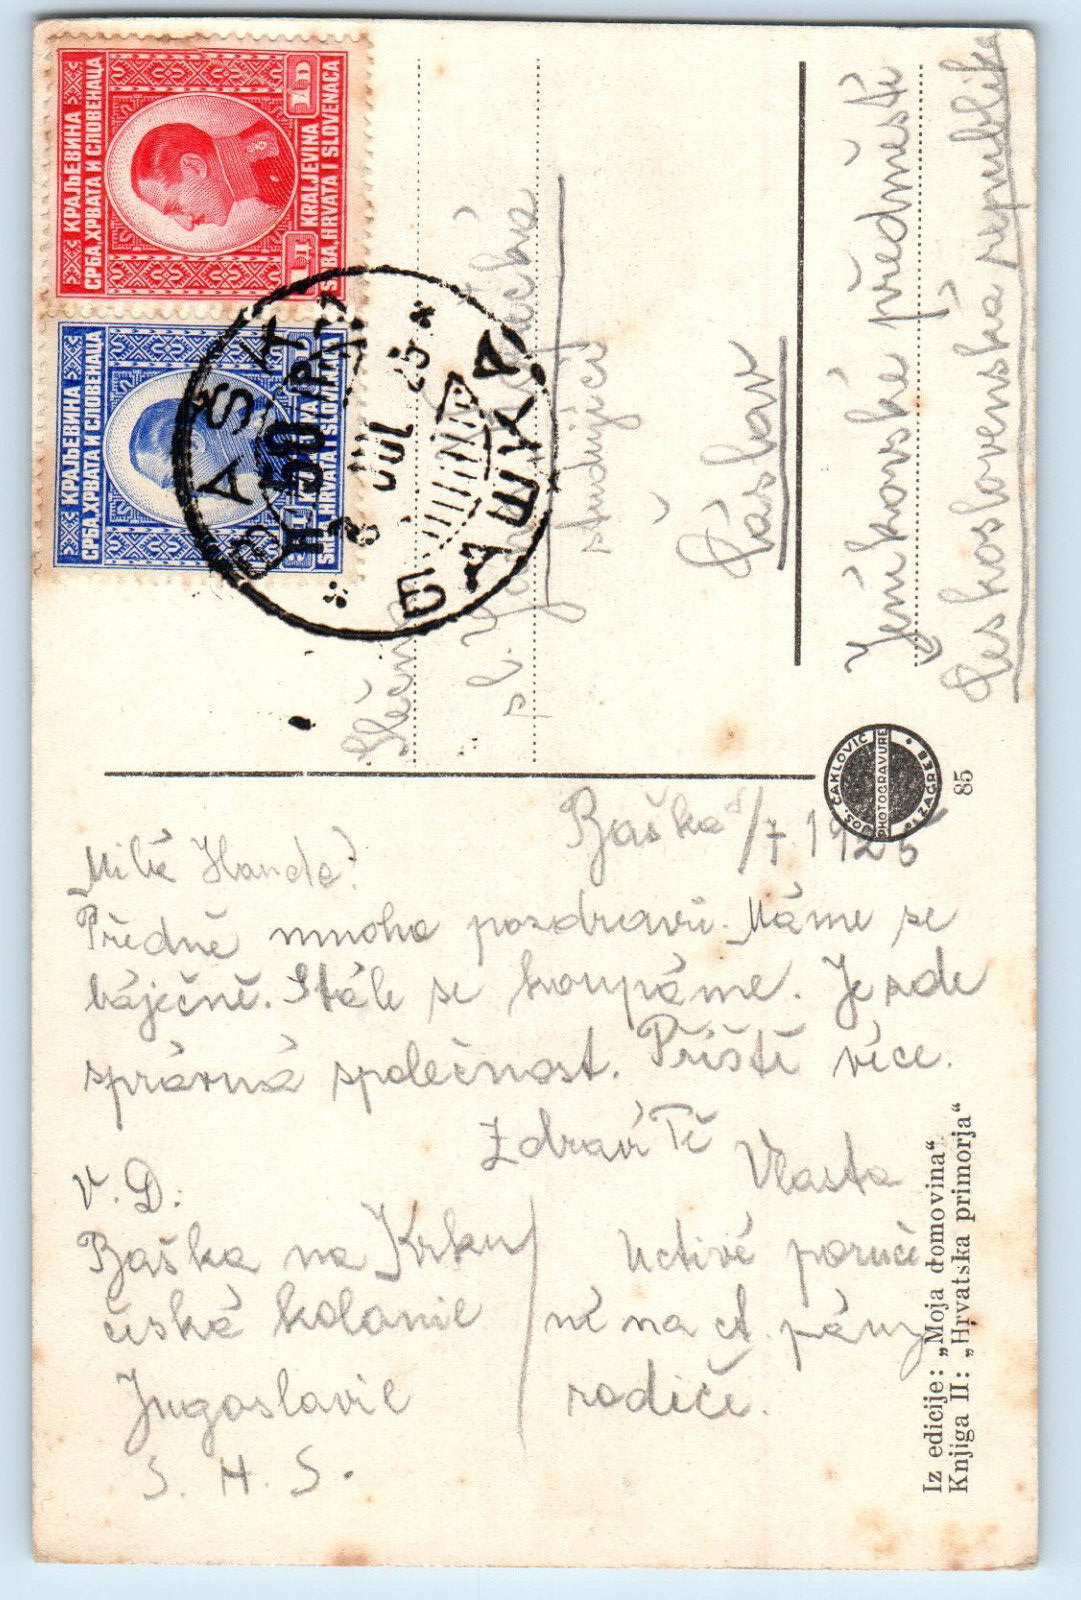 КРАЉЕВИНА
СРБА, ХРВАТА И СЛОВЕНАЦА
1 Д 1 D
KRALJEVINA
SRBA, HRVATA I SLOVENACA
КРАЉЕВИНА
СРБА, ХРВАТА И СЛОВЕНАЦА
BAŠKA
8 JUL 25
БАШКА
Slečna
sl.
studující
Čáslav
Jeníkovské předměstí
Československá republika
JOS. ČAKLOVIĆ
PHOTOGRAVURE
ZAGREB
85
Baška 8/7. 1925
Milá Hando!
Předně mnoho pozdravů. Máme se
báječně. Stále se koupáme. Je zde
správná společnost. Příště více.
Zdraví Tě
Vlasta
V. D.
Baška na Krku
česká kolonie
Jugoslavie
S. H. S.
Uctivé poruče
ní na ct. pány
rodiče.
Iz edicije: „Moja domovina“
Knjiga II: „Hrvatska primorja“